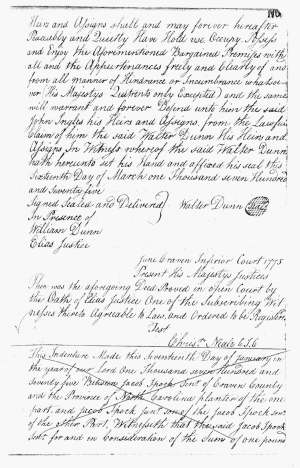 Heirs and Assigns shall and may forever hereafter
Peaceably and Quietly Have Hold use Occupy Possess
and Enjoy the Aforementioned Bargained Premises with
all and the Appurtenances freely and Clearly of and
from all manner of Hindrance or Incumbrance whatsoe
ver His Majestys Quitrents only Excepted) and the same
will warrant and forever Defend unto him the said
John Ingles his Heirs and Assigns, from the Lawfull
Claim of him the said Walter Dunn His Heirs and
Assigns In Witness whereof the said Walter Dunn
hath hereunto set his Hand and affixed his seal this
Sixteenth Day of March one Thousand seven Hundred
and Seventy five
Signed Sealed and Deliverd } Walter Dunn Seal
In Presence of
William Dunn
Elias Justice
June Craven Inferior Court 1775
Present His Majestys Justices
Then was the aforegoing Deed Proved in open Court by
the Oath of Elias Justice One of the Subscribing Wit
nesses thereto Agreeable to Law, and Ordered to be Register.
Test
Chrisr. Neale C.S.C
This Indenture Made this Seventeenth Day of January in
the year of our Lord One Thousand seven Hundred and
seventy five Between Jacob Spock Senr. of Craven County
and the Province of North Carolina planter of the one
part, and Jacob Spock junr. son of the Jacob Spock senr.
of the other Part, Witnesseth that the said Jacob Spock
Senr. for and in Consideration of the Sum of one pound